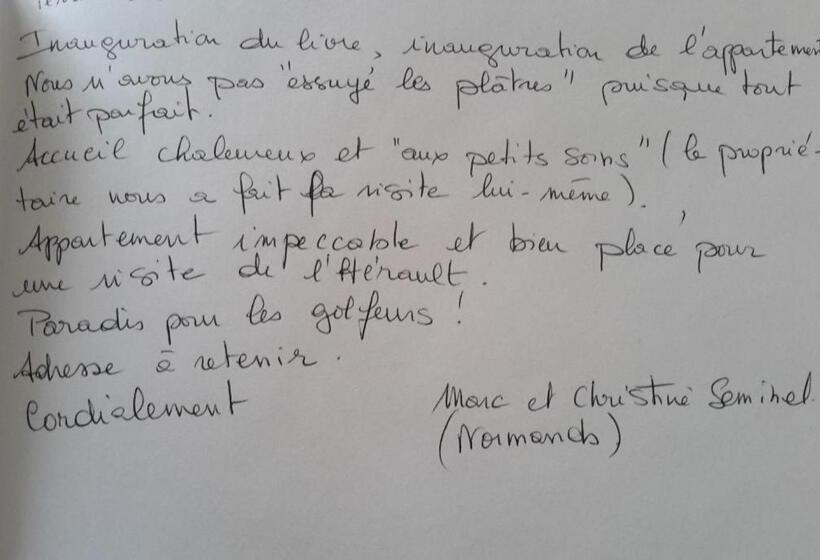 Inauguration du livre, inauguration de l'appartement
Nous n'avons pas "essuyé les plâtres" puisque tout
était parfait.
Accueil chaleureux et "aux petits soins" (le proprié-
taire nous a fait la visite lui-même).
Appartement impeccable et bien placé pour
une visite de l'Hérault.
Paradis pour les golfeurs !
Adresse à retenir.
Cordialement
Marc et Christine Seminel.
(Normands)